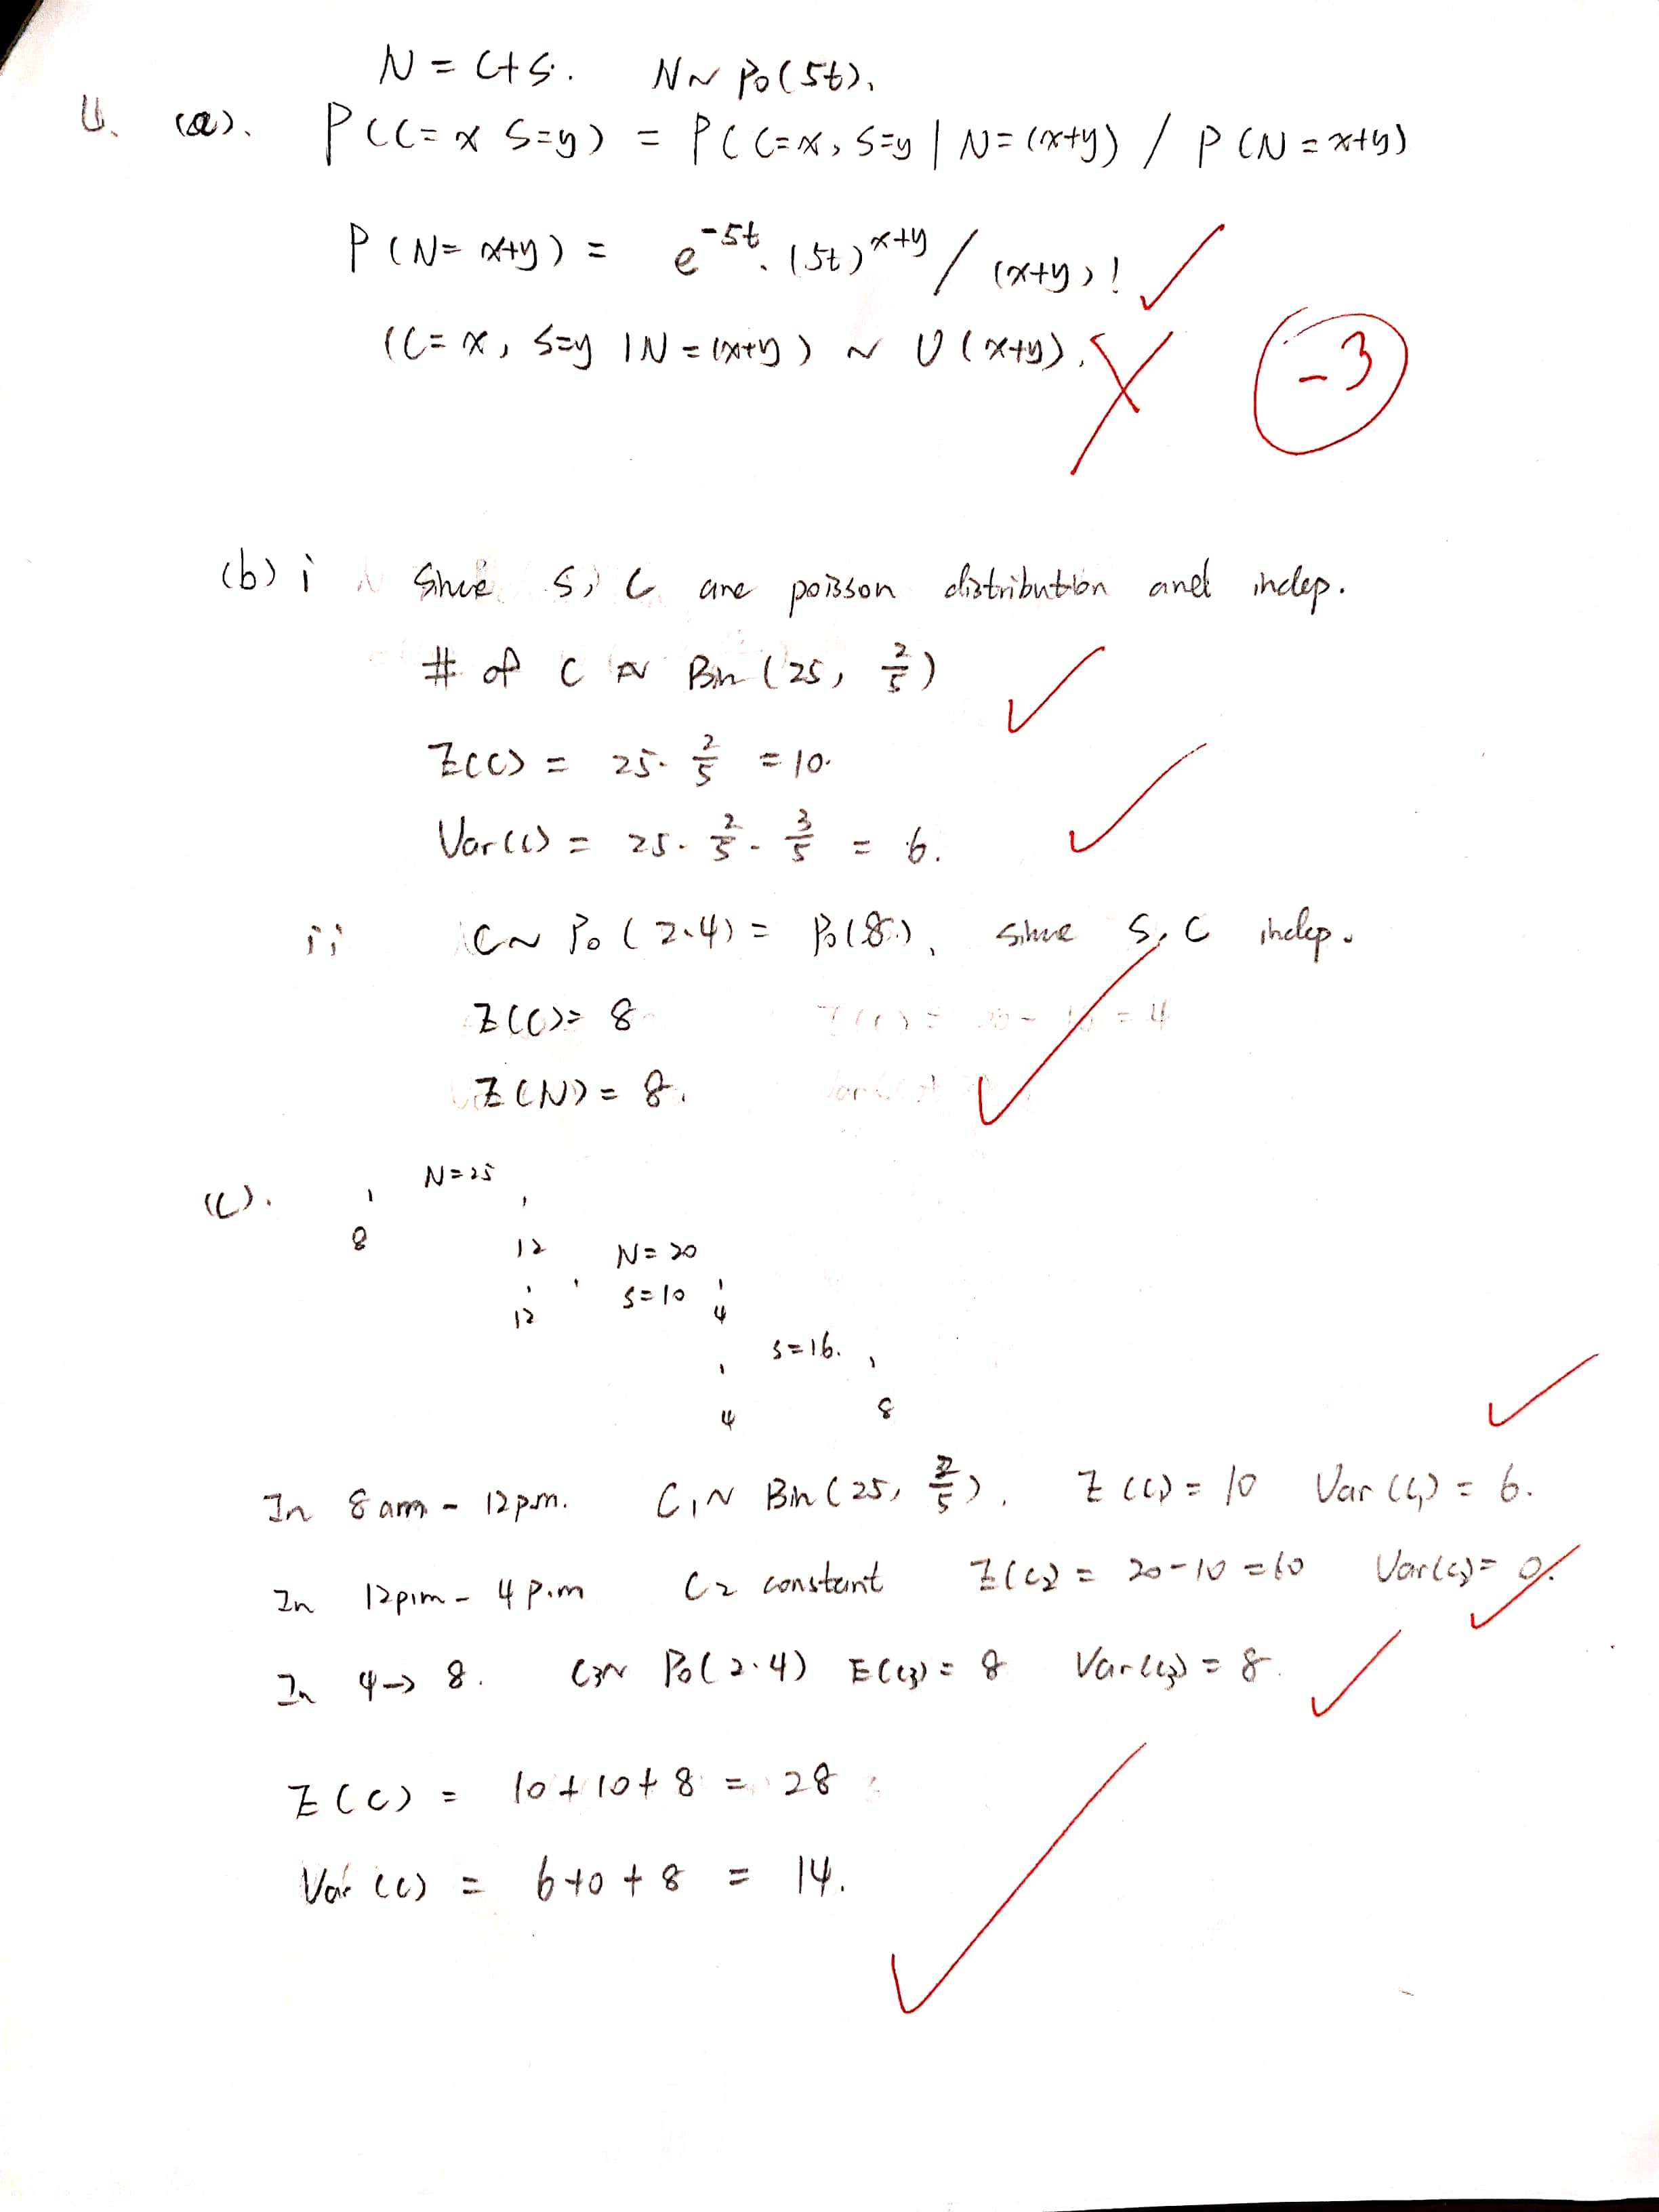 N = C+S. N~ Po(5t).
4. (a). P(C=x S=y) = P(C=x, S=y | N=(x+y) / P(N=x+y)
P(N=x+y) = e^-5t. (5t)^x+y / (x+y)!
(C=x, S=y |N=(x+y) ~ U(x+y).
-3
(b) i Since S, C are poisson distribution and indep.
# of C ~ Bin (25, 2/5)
E(C) = 25· 2/5 = 10.
Var(C) = 25· 2/5 · 3/5 = 6.
ii C~ Po(2·4) = Po(8), since S, C indep.
E(C)= 8
E(N) = 8.
(c). N=25
8 12 N=20
12 S=10 4
S=16.
4 8
In 8am - 12p.m. C1~ Bin(25, 2/5). E(C1) = 10 Var(C1) = 6.
In 12p.m - 4p.m C2 constant E(C2) = 20-10=10 Var(C2)= 0.
In 4→8. C3~ Po(2·4) E(C3) = 8 Var(C3) = 8.
E(C) = 10+10+8 = 28
Var(C) = 6+0+8 = 14.